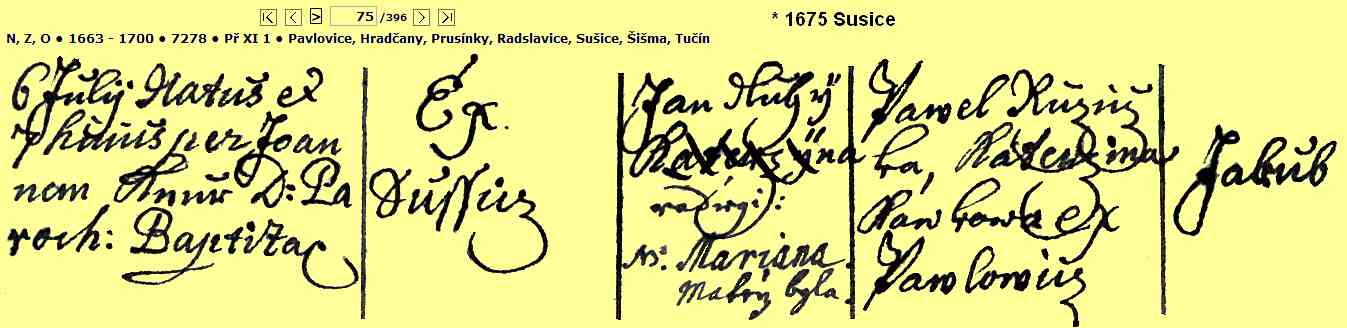 75 /396
* 1675 Susice
N, Z, O ● 1663 - 1700 ● 7278 ● Př XI 1 ● Pavlovice, Hradčany, Prusínky, Radslavice, Sušice, Šišma, Tučín
6 Julij Natus et
7 huius per Joan
nem Knur D: Pa
roch: Baptizat
Ex.
Sussicz
Jan Dluhÿ
Katerzÿna
Nb. Mariana.
Matrÿ byla.
Pawel Ruzicz
ka, Katerzina
Kawkowa ex
Pawlowicz
Jakub